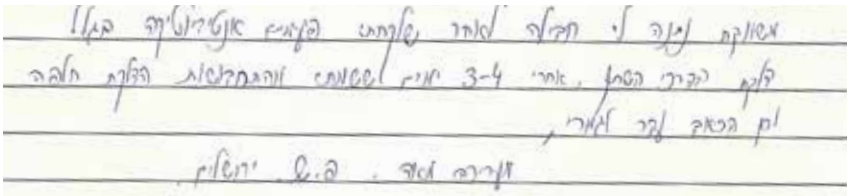 משווקת נתנה לי חבילה לאחר שלקחתי פעמיים אנטיביוטיקה בגלל
דלקת בדרכי השתן. אחרי 3-4 ימים ששמתי מהתחבושות הדלקת חלפה
וגם הכאב עבר לגמרי,
מעריכה מאוד. פ.ש. ירושלים.